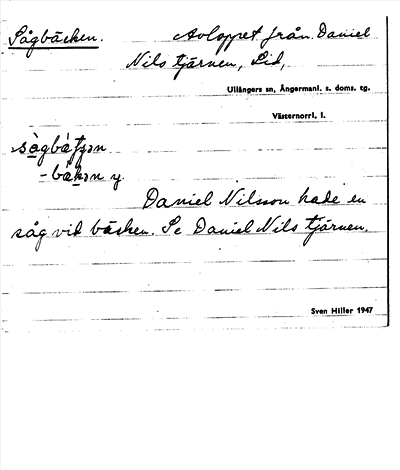 Sågbäcken. Avloppet från Daniel
Nils tjärnen, Lid,
Ullångers sn, Ångermanl. s. doms. tg.
Västernorrl. l.
Daniel Nilsson hade en
såg vid bäcken. Se Daniel Nils tjärnen.
Sven Hiller 1947